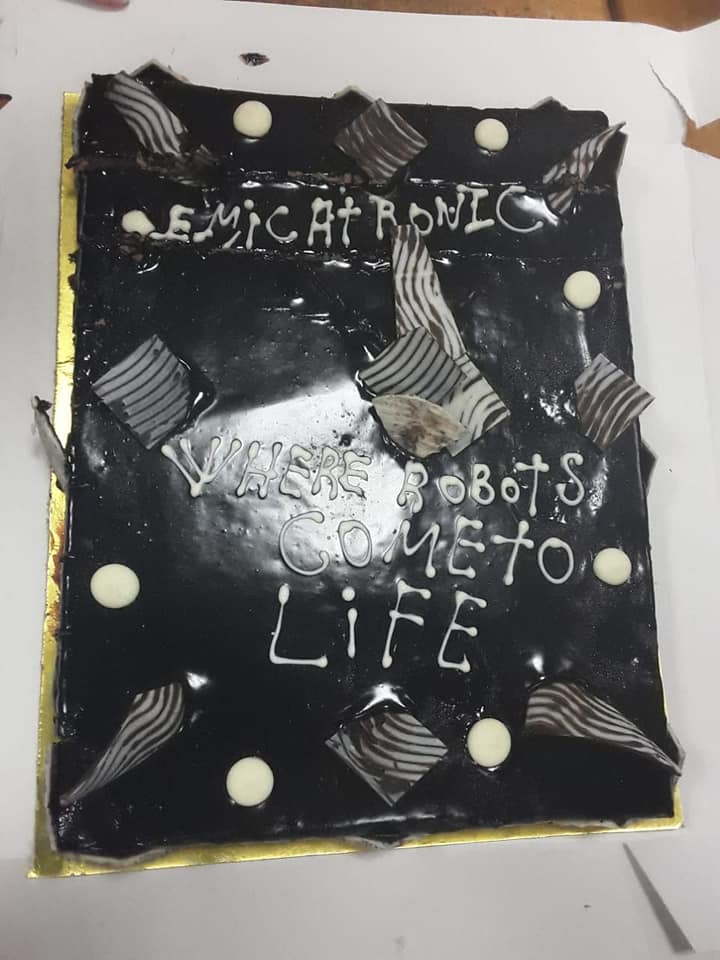 EMiCAtRONIC
WHERE ROBOtS
COME tO
LiFE